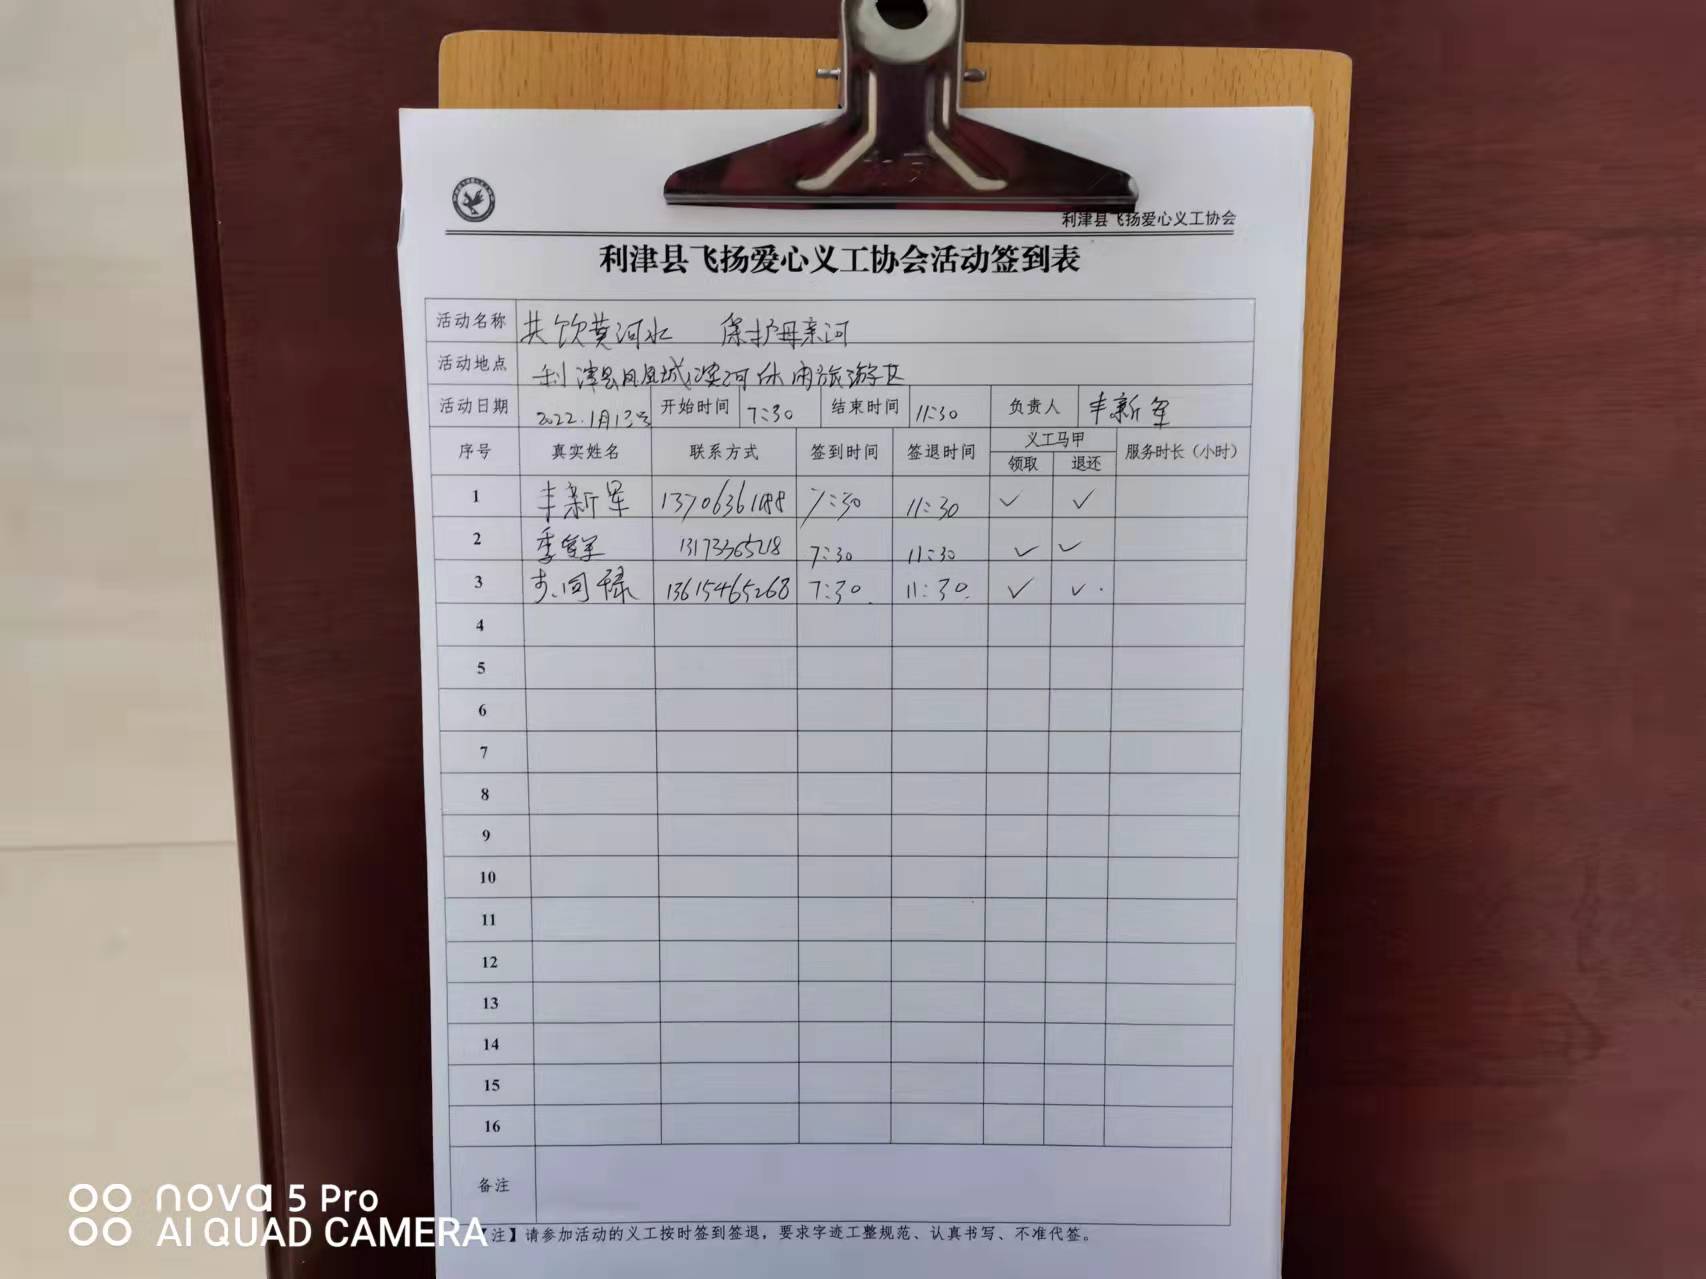 利津县飞扬爱心义工协会
利津县飞扬爱心义工协会活动签到表
活动名称 共饮黄河水 保护母亲河
活动地点 利津县凤凰城滨河休闲旅游区
活动日期 2022.1月13号 开始时间 7:30 结束时间 11:30 负责人 丰新军
序号 真实姓名 联系方式 签到时间 签退时间 义工马甲 服务时长（小时）
领取 退还
1 丰新军 13706361188 7:30 11:30 ✓ ✓
2 13173365218 7:30 11:30 ✓ ✓
3 13615465268 7:30 11:30 ✓ ✓
4
5
6
7
8
9
10
11
12
13
14
15
16
备注
注】请参加活动的义工按时签到签退，要求字迹工整规范、认真书写、不准代签。
nova 5 Pro
AI QUAD CAMERA